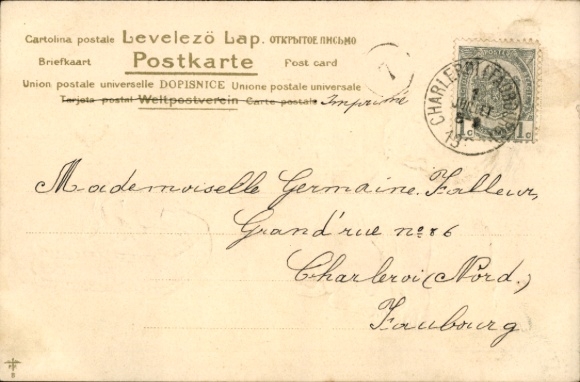 Cartolina postale Levelező Lap. ОТКРЫТОЕ ПИСЬМО
Briefkaart Postkarte Post card
Union postale universelle DOPISNICE Unione postale universale
Tarjeta postal Weltpostverein Carte postale Imprimé
7
POSTES
CHARLEROI (FAUBOURG
1
JUIL
1c 1c
Mademoiselle Germaine Falleur,
Grand'rue no 86
Charleroi (Nord.)
Faubourg